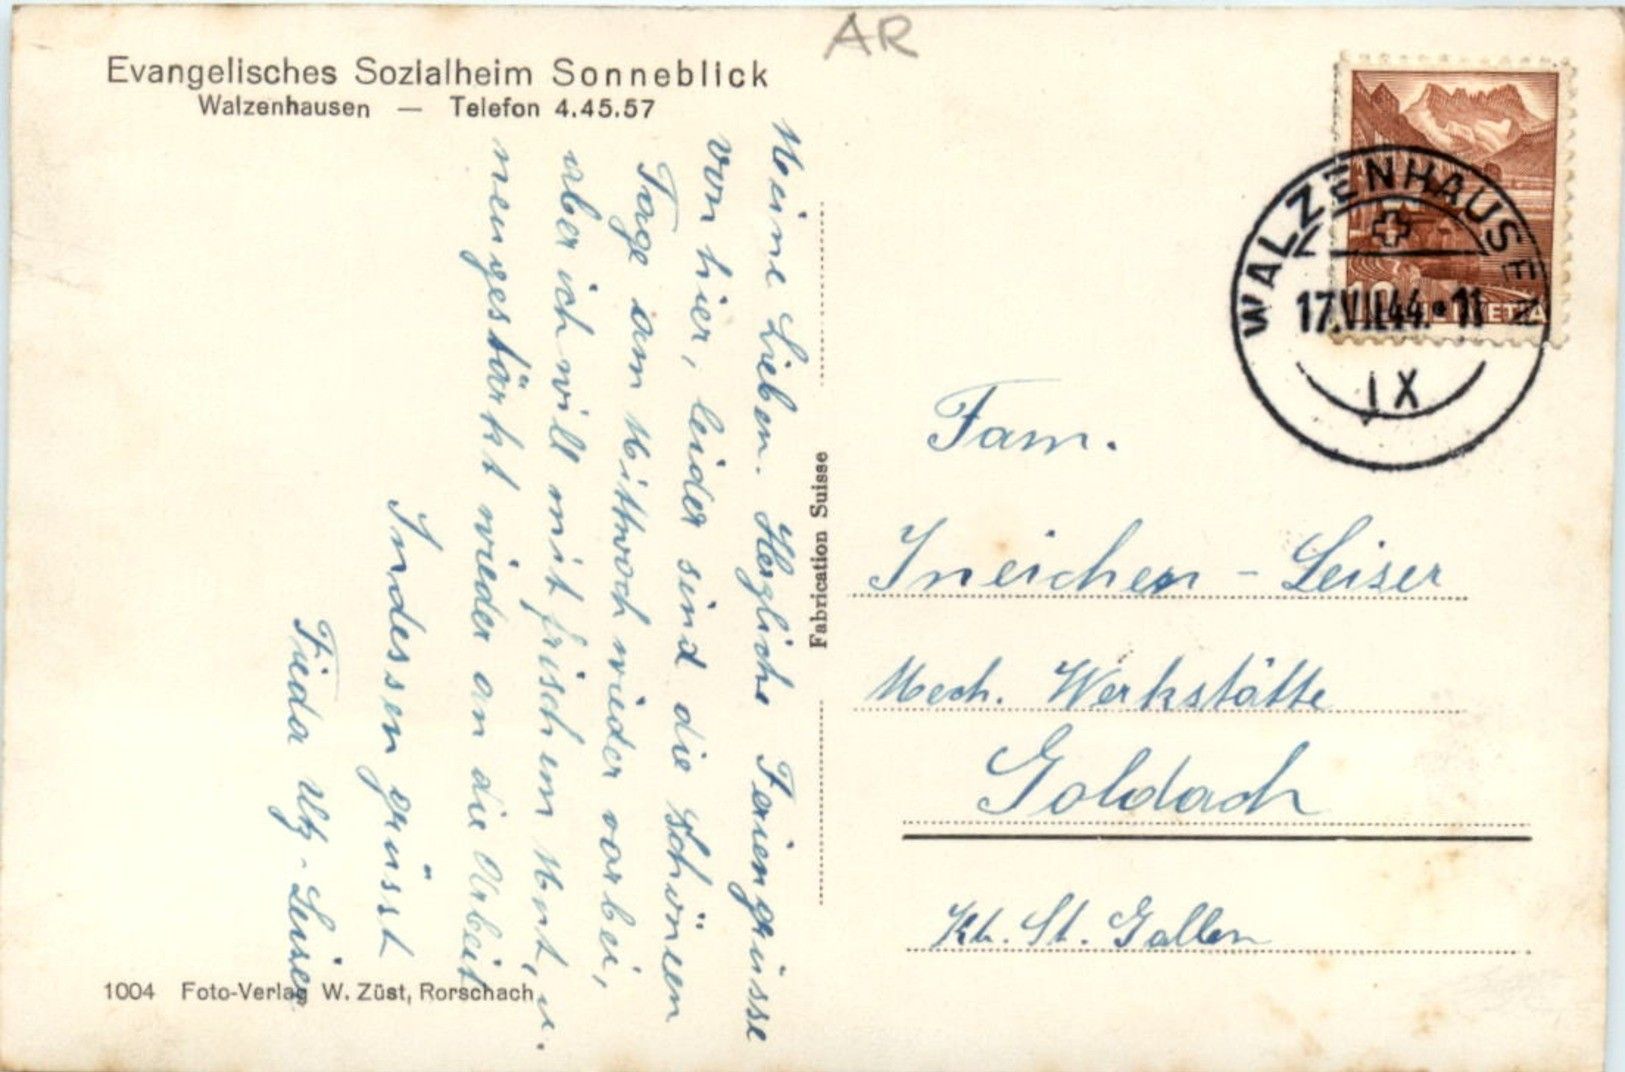 AR
Evangelisches Sozialheim Sonneblick
Walzenhausen — Telefon 4.45.57
Meine Lieben. Herzliche Feriengrüsse
von hier, leider sind die schönen
Tage am Mittwoch wieder vorbei,
aber ich will mit frischem Mut, u.
neugestärkt wieder an die Arbeit
Indessen grüsst
Frieda Utz-Leiser
Fabrication Suisse
WALZENHAUSEN
HELVETIA
IX
Fam.
Ineichen - Leiser
Mech. Werkstätte
Goldach
Kt. St. Gallen
1004 Foto-Verlag W. Züst, Rorschach